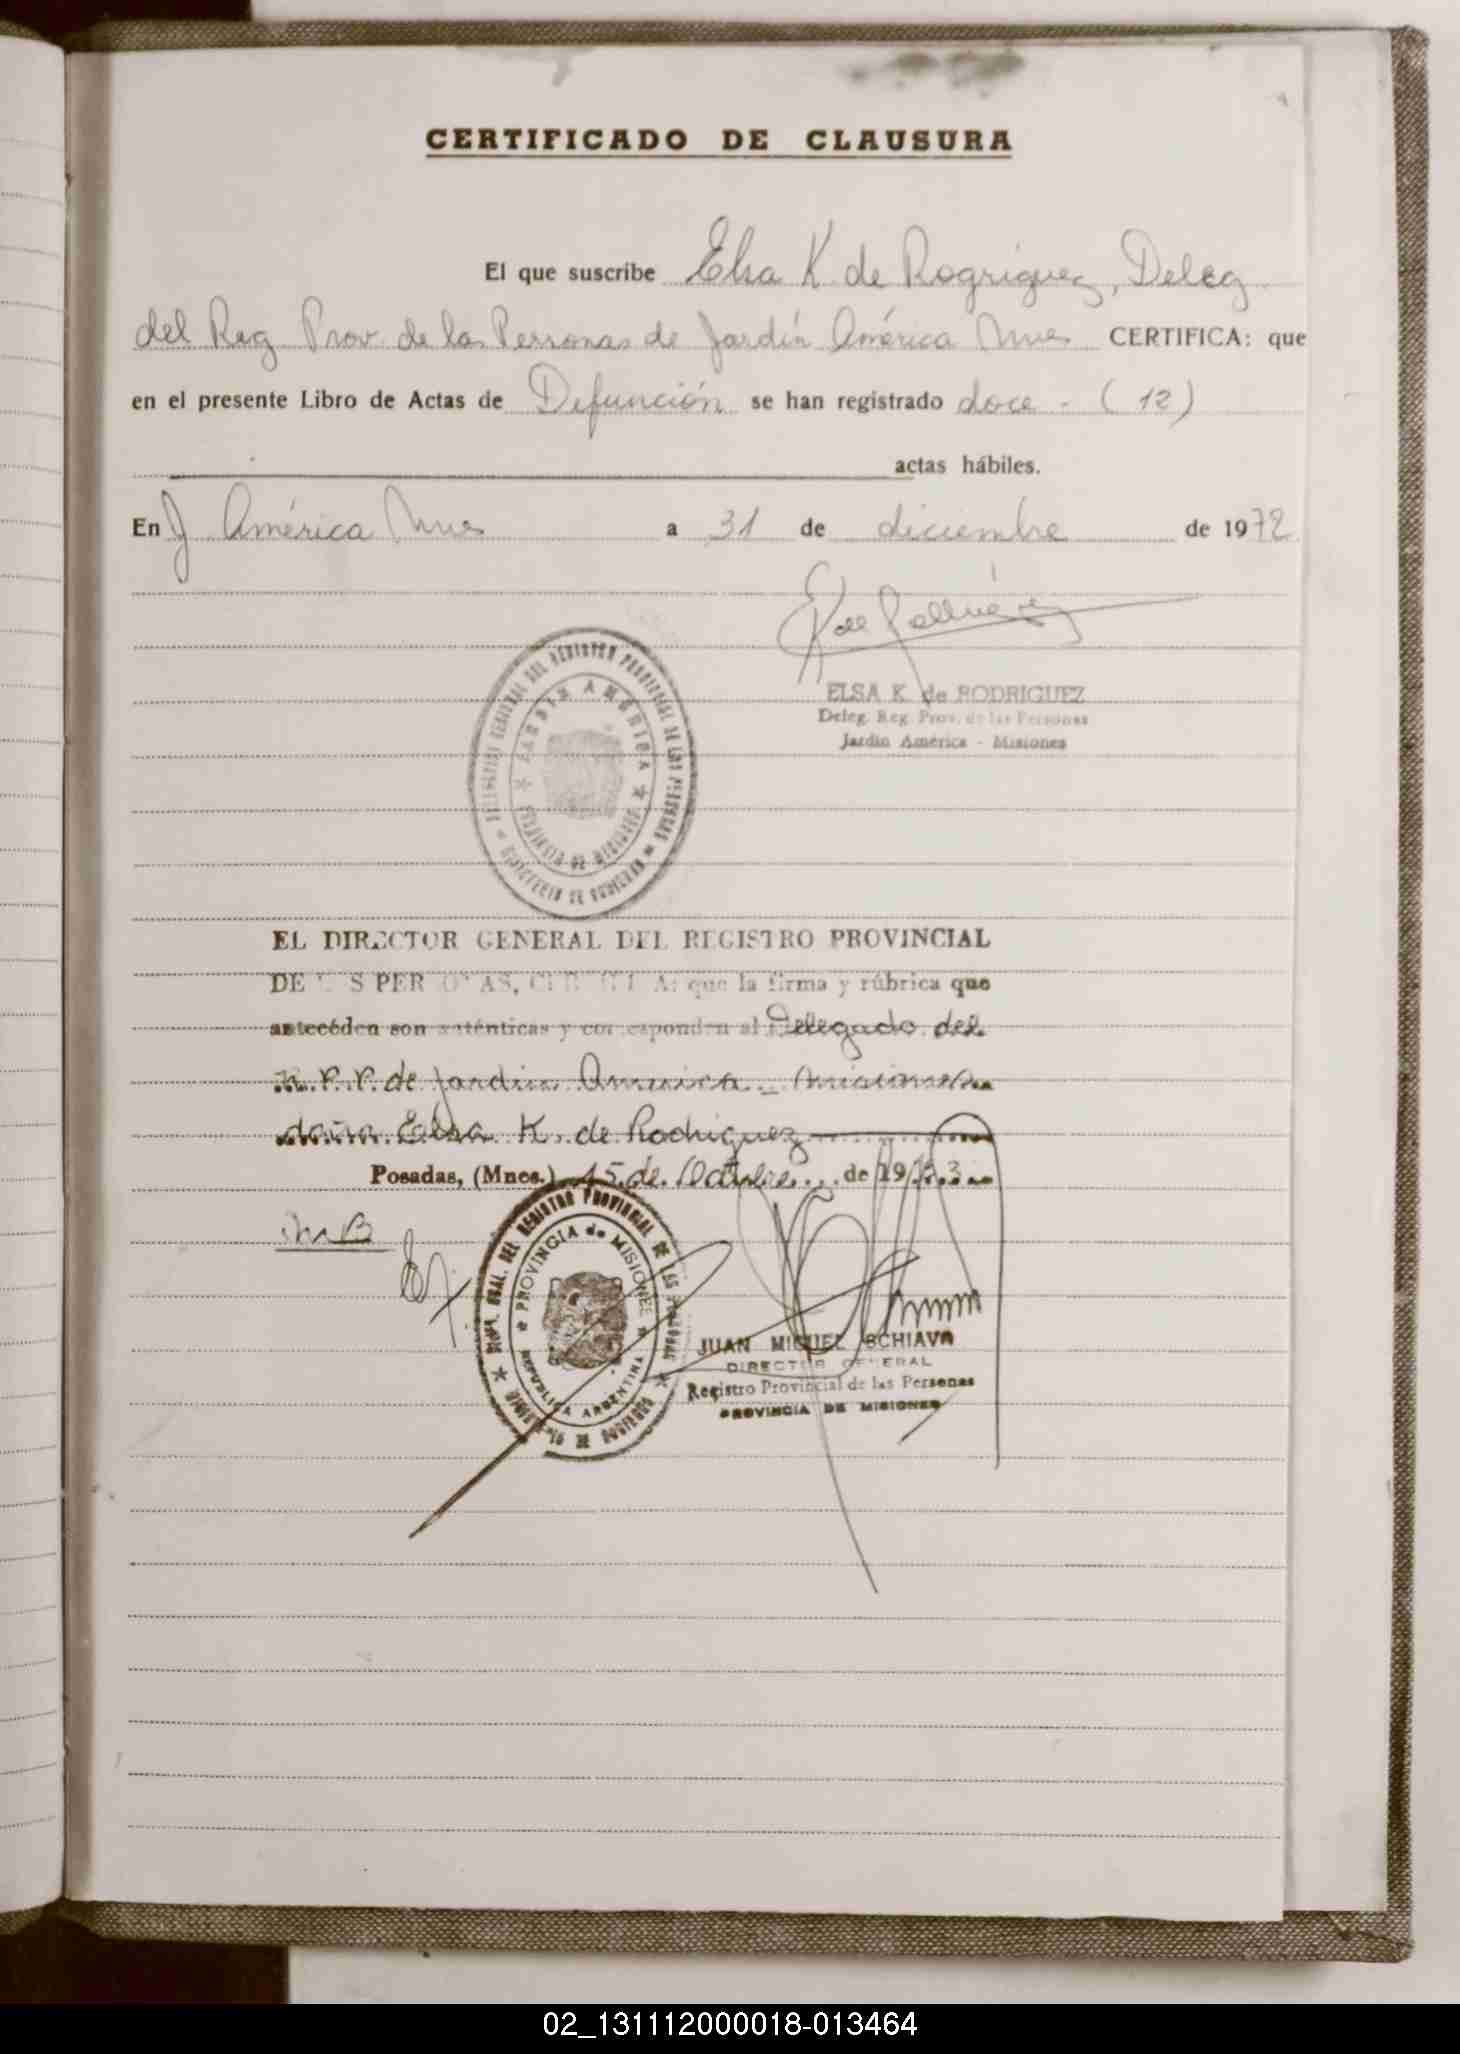 CERTIFICADO DE CLAUSURA
El que suscribe Elsa K. de Rogriguez, Deleg.
del Reg. Prov. de las Personas de Jardín América Mnes CERTIFICA: que
en el presente Libro de Actas de Defunción se han registrado doce - (12)
actas hábiles.
En J. América Mnes a 31 de diciembre de 1972
ELSA K. de RODRIGUEZ
Deleg. Reg. Prov. de las Personas
Jardín América - Misiones
DELEGACION REGIONAL DEL REGISTRO PROVINCIAL DE LAS PERSONAS
MINISTERIO DE GOBIERNO
JARDIN AMERICA
PROVINCIA DE MISIONES
EL DIRECTOR GENERAL DEL REGISTRO PROVINCIAL
DE PER AS, A: que la firma y rúbrica que
anteceden son auténticas y corresponden al Delegado del
R. P. P. de Jardín America - Misiones
doña Elsa K. de Rodriguez
Posadas, (Mnes.) 15 de Octubre de 1973
GRAL. DEL REGISTRO PROVINCIAL DE LAS PERSONAS
PROVINCIA de MISIONES
REPUBLICA ARGENTINA
JUAN MIGUEL SCHIAVA
DIRECTOR GENERAL
Registro Provincial de las Personas
PROVINCIA DE MISIONES
02_131112000018-013464